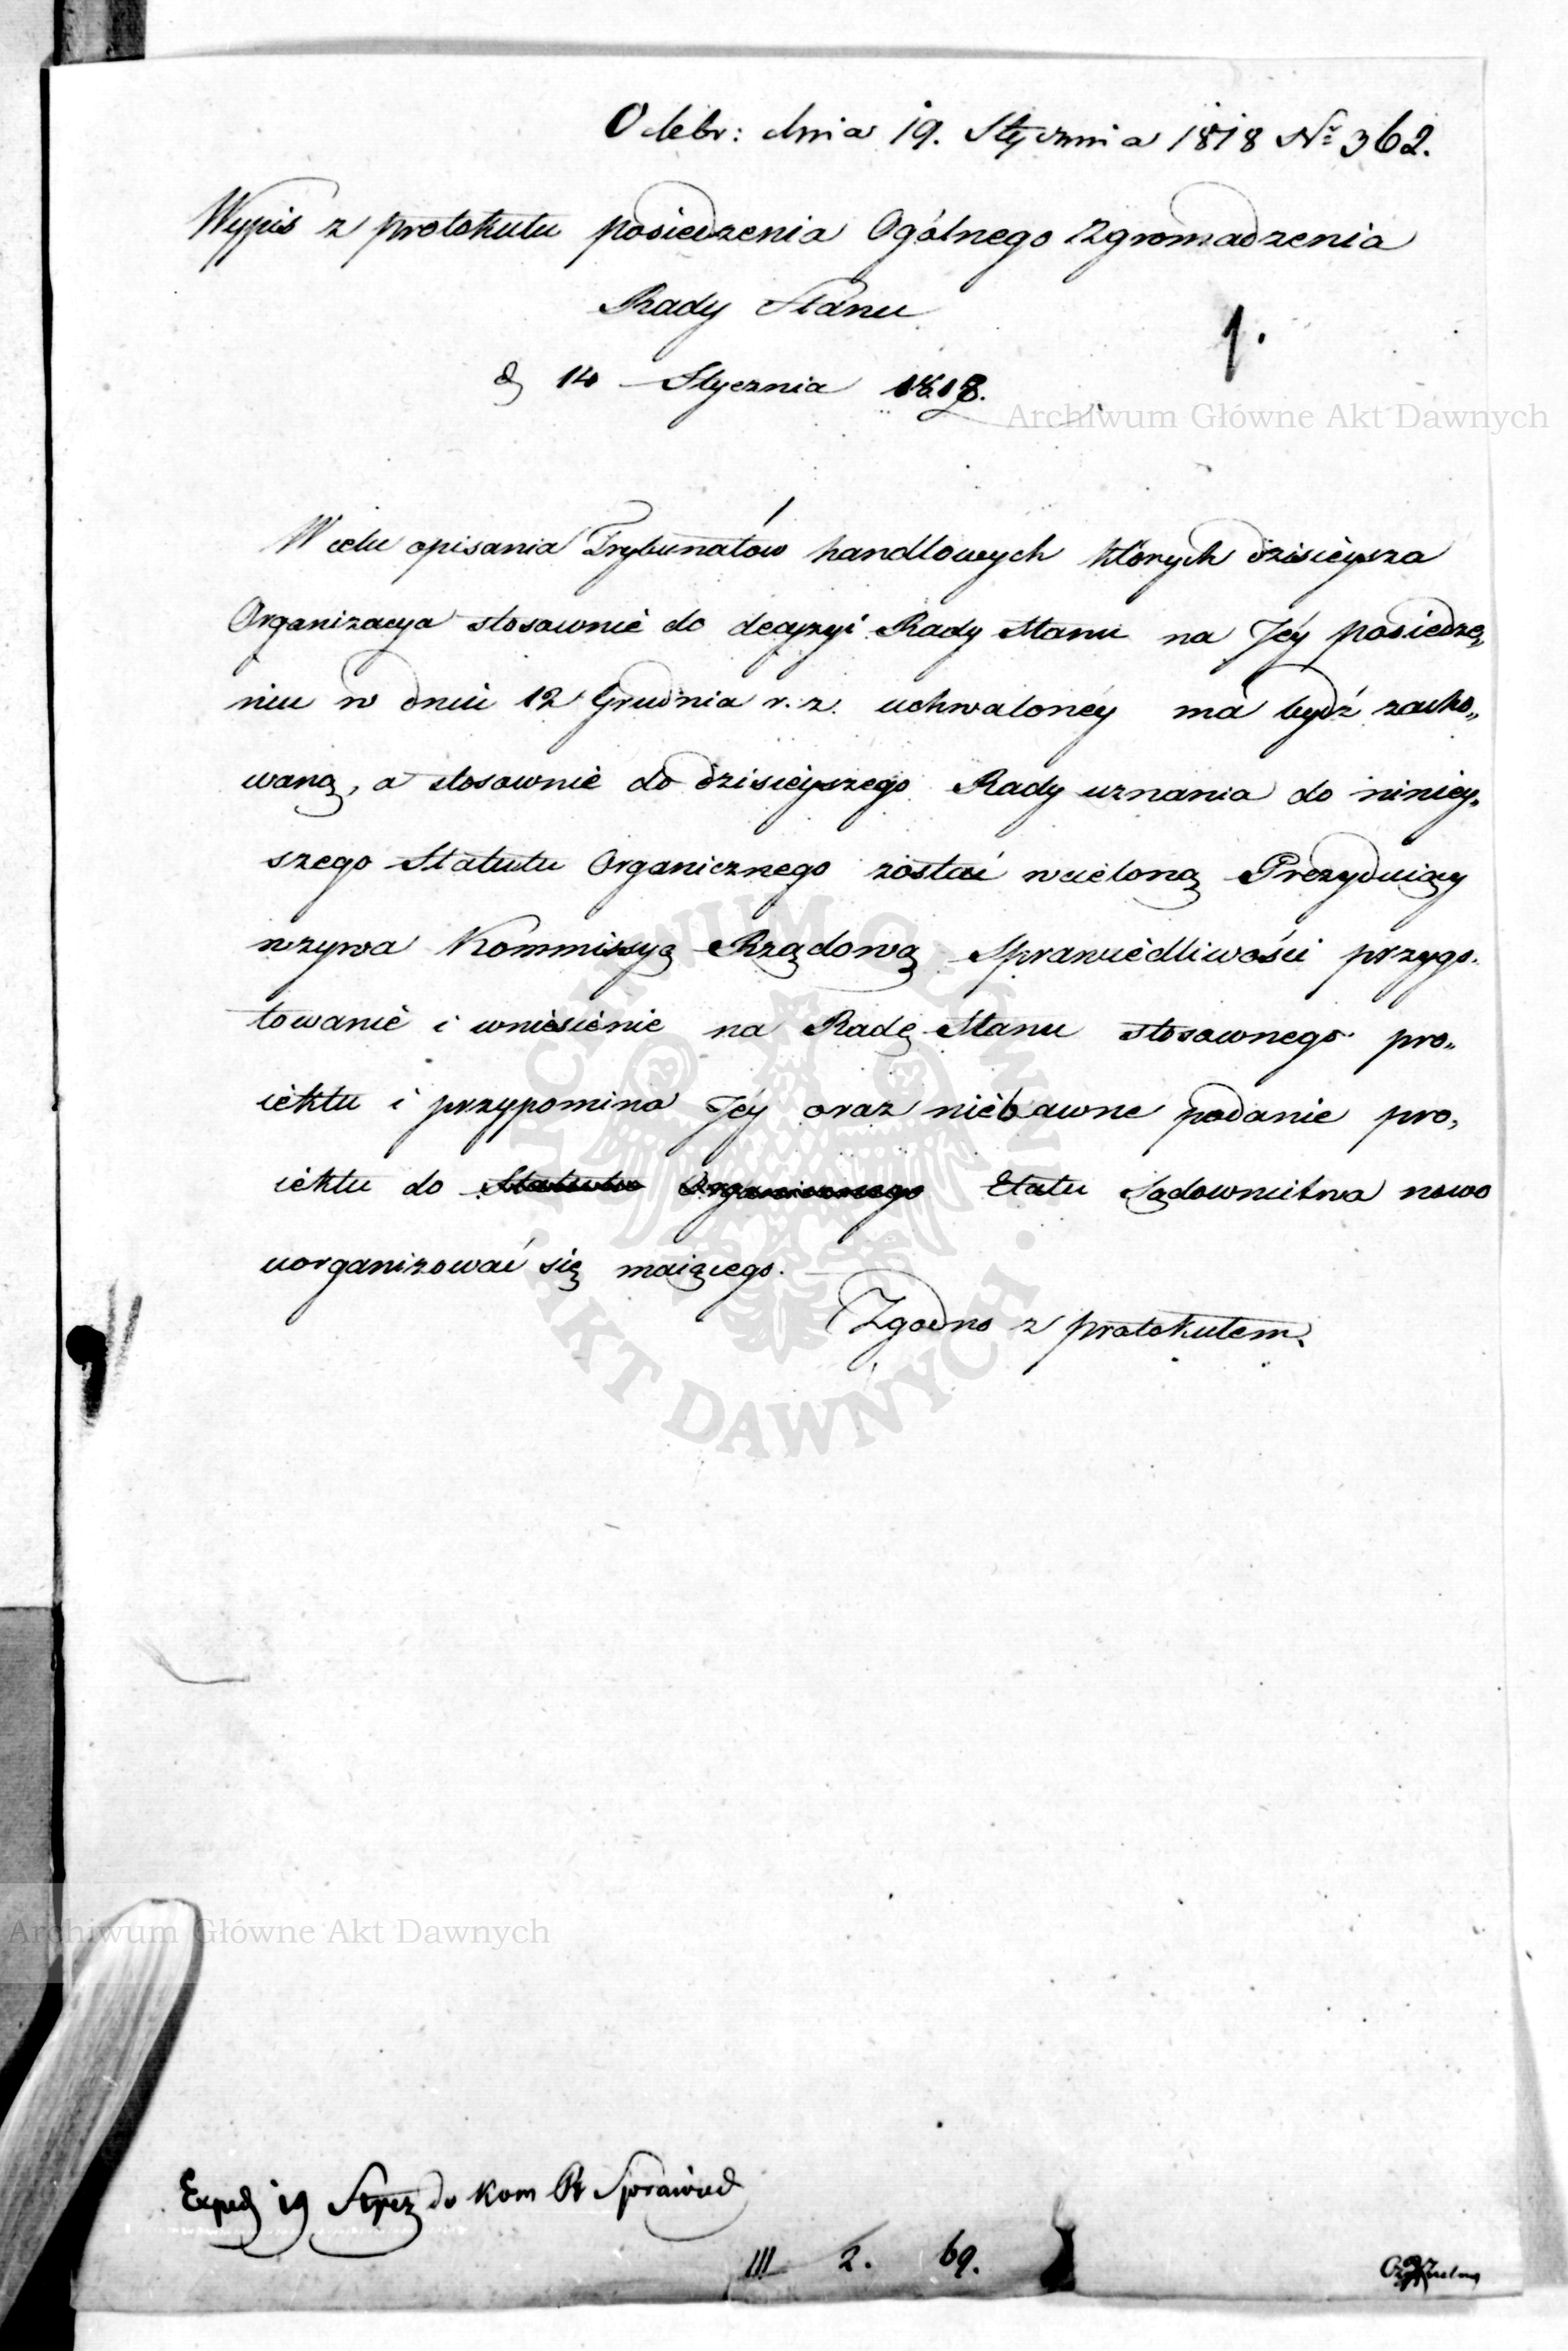 Odebr: dnia 19. Stycznia 1818 Nº 362.
Wypis z protokułu posiedzenia Ogólnego Zgromadzenia
Rady Stanu
1.
d 14 Stycznia 1818.
Archiwum Główne Akt Dawnych
W celu opisania Trybunałów handlowych których dzisieysza
Organizacya stosownie do decyzyi Rady Stanu na Jéy posiedze„
niu w dniu 12 Grudnia r. z. uchwalonéy ma bydź zacho„
waną, a stosownie do dzisieyszego Rady uznania do niniey„
szego Statutu Organicznego zostać wcieloną Prezyduiący
wzywa Kommissyą Rządową Sprawiedliwości przygo„
towanie i wniesienie na Radę Stanu stosownego pro„
iektu i przypomina Jéy oraz niebawne podanie pro„
iektu do Statutu Organicznego Etatu Sądownictwa nowo
uorganizować się maiącego.
Zgodno z protokułem.
ARCHIWUM GŁÓWNE AKT DAWNYCH
Archiwum Główne Akt Dawnych
Exped 19 Stycz do Kom R Sprawied
III 2. 69.